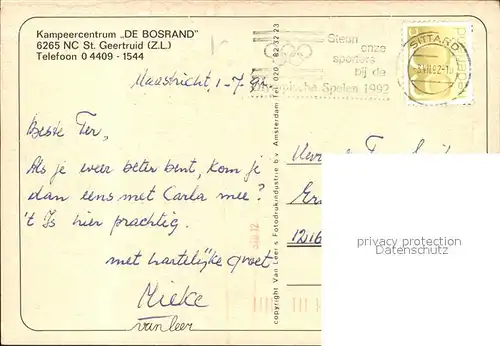 Kampeercentrum „DE BOSRAND"
6265 NC St. Geertruid (Z.L.)
Telefoon 0 4409 - 1544
Maastricht 1-7-92
Beste Ter,
Als je weer beter bent, kom je
dan eens met Carla mee?
't Is hier prachtig.
met hartelijke groet
Mieke
van leer
copyright Van Leer's Fotodrukindustrie b.v. Amsterdam Tel. 020 - 82 32 23
Steun
onze
sporters
bij de
Olympische Spelen 1992
SITTARD
1216
privacy protection
Datenschutz